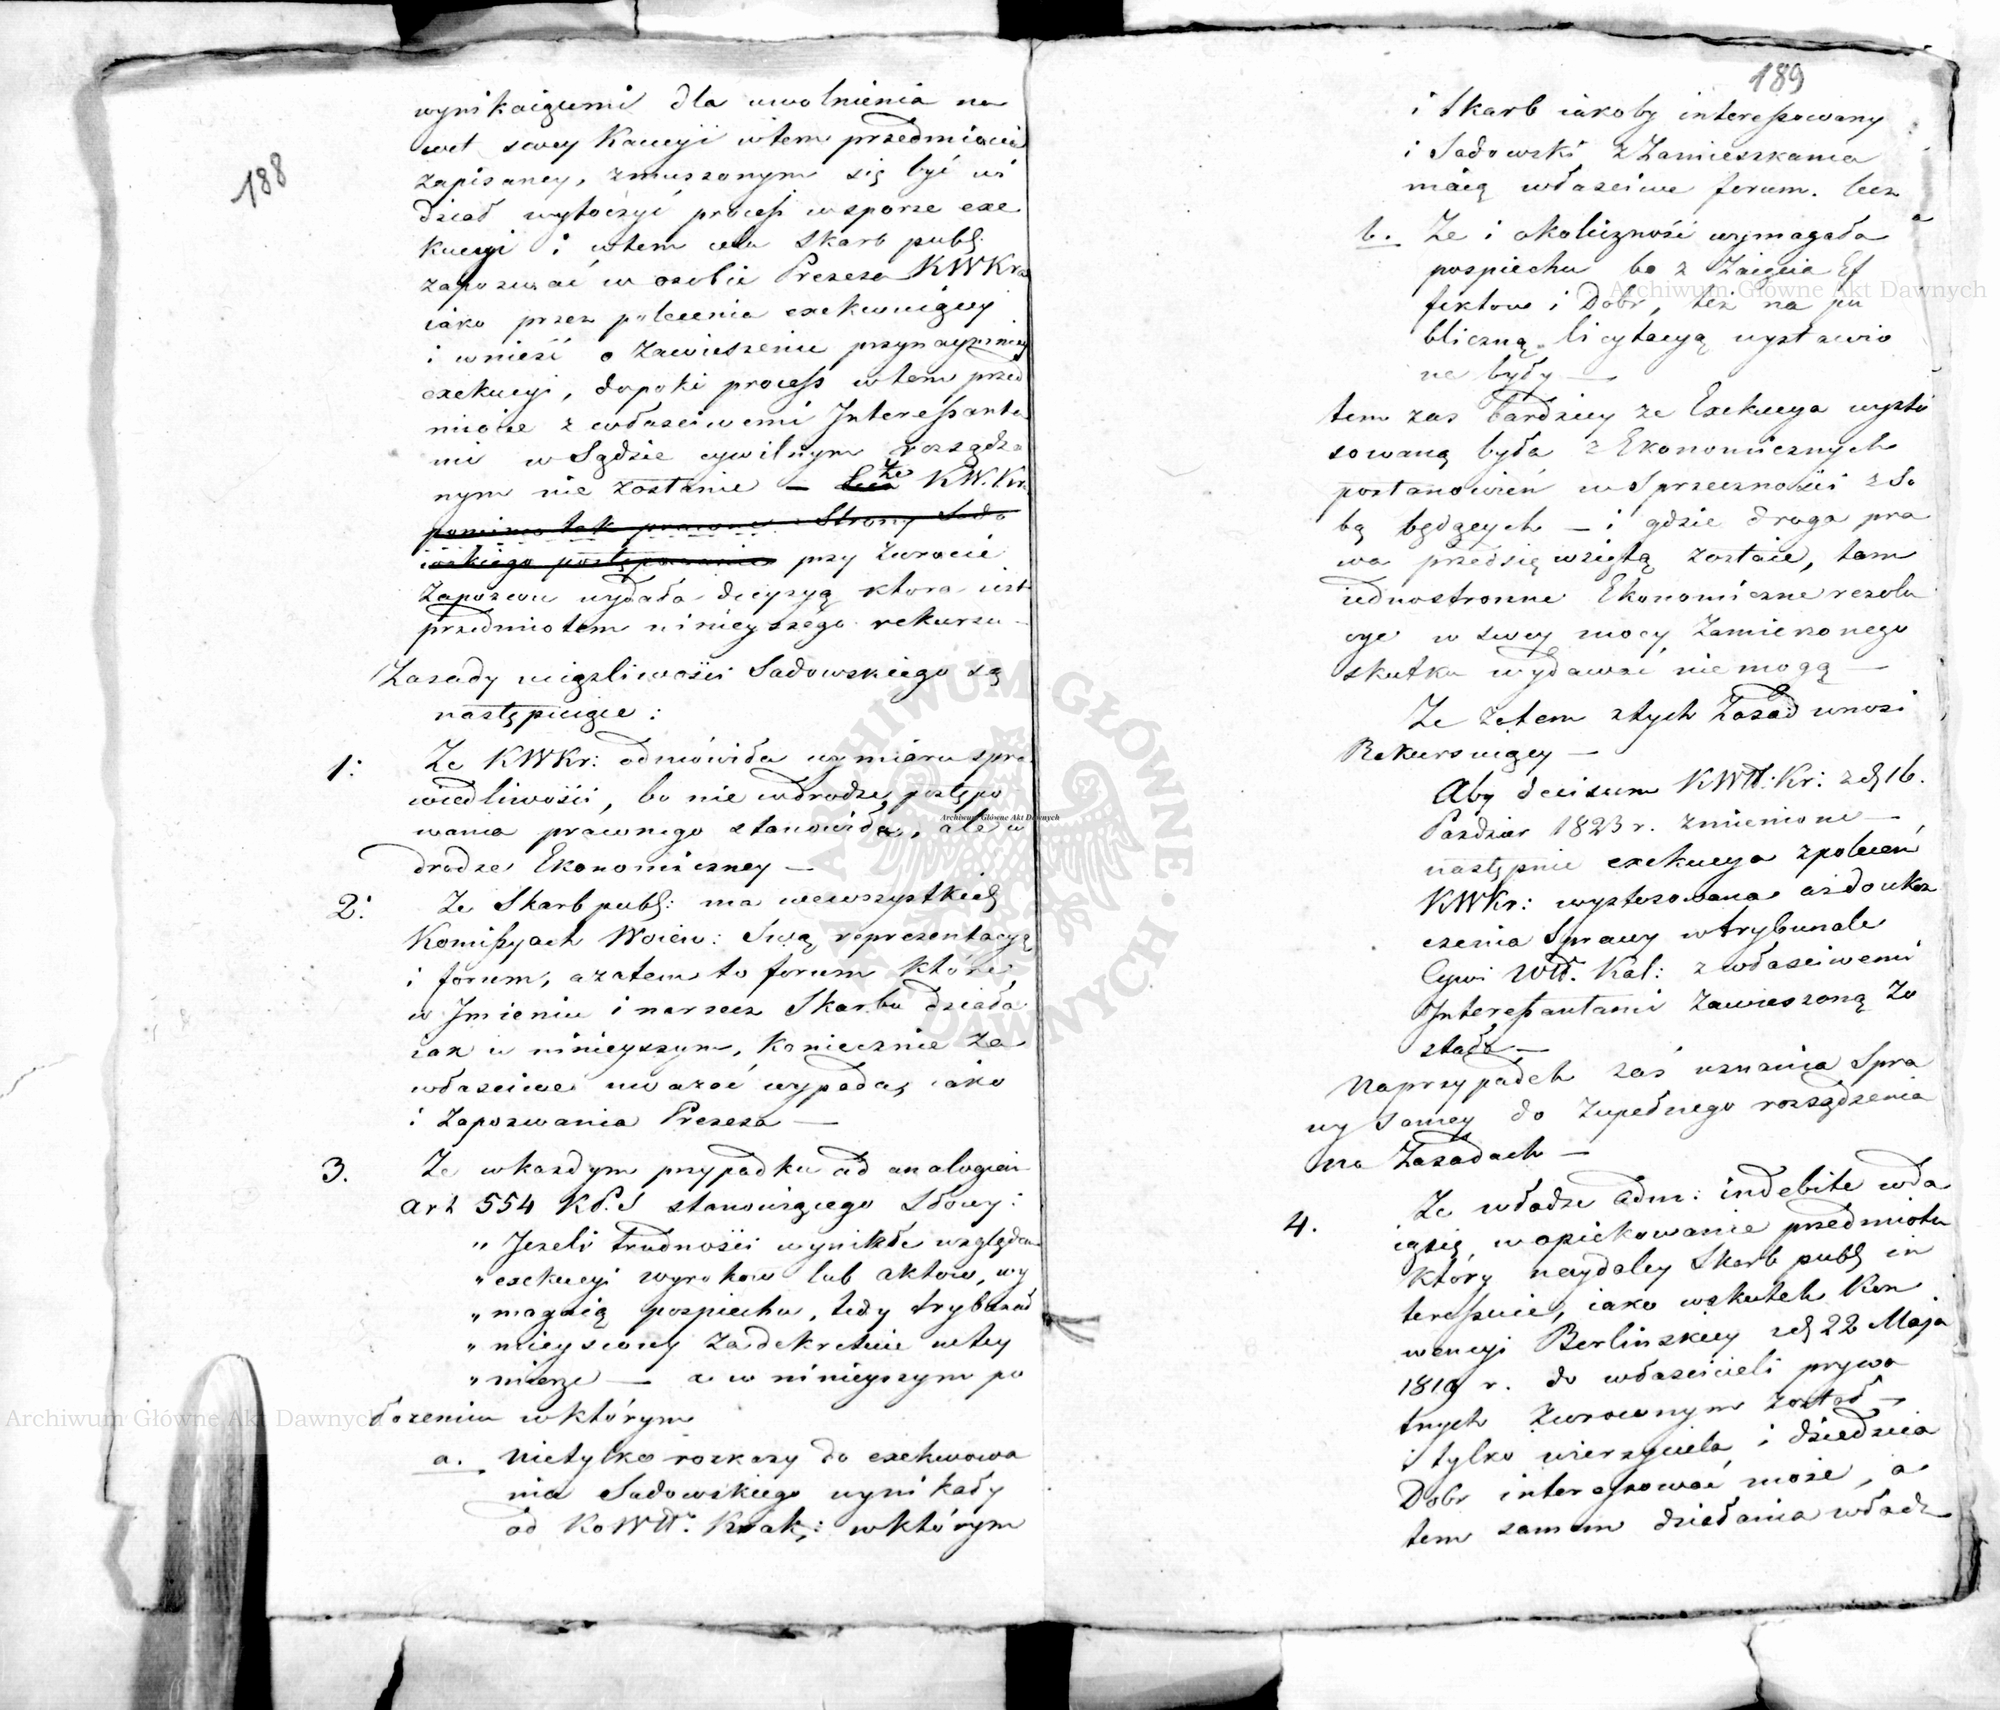 188
wynikaiącemi dla uwolnienia na
wet swey Kaucyi wtem przedmiocie
zapisaney, zmuszonym się być wi
dział wytoczyć process wsporze exe
kucyi i wtem celu Skarb publ:
zapozwać w osobie Prezesa KWKra
iako przez polecenia exekwuiącey
i wnieść o zawieszenie przynaymniey
exekucyi, dopoki process wtem przed
miocie z właściwemi Interessanta
mi w Sądzie cywilnym rozsądzo
nym nie zostanie — Że KW. Kra
pomimo tak prawne Strony Sado
wskiego postępowanie przy zwrocie
Zapozwu wydała decyzyą ktora iest
przedmiotem ninieyszego rekursu —
Zasady uciążliwości Sadowskiego są
następuiące:
1: Że KWKr: odmówiła wymiaru spra
wiedliwości, bo nie wdrodze postępo
wania prawnego stanowiła, ale w
drodze Ekonomiczney —
2: Że Skarb publ: ma wewszystkich
Komissyach Woiew: Swą reprezentacyą
i forum, azatem to forum które
w Imieniu i narzecz Skarbu działa
iak w ninieyszym, koniecznie za
właściwe uważać wypada, iako
i Zapozwania Prezesa —
3. Że wkażdym przypadku od analogiei
art 554 K.P.S stanowiącego Słowy:
„Jeżeli trudności wynikłe względem
„exekucyi wyrokow lub aktow, wy
„magaią pospiechu, tedy trybunał
„mieyscowy Zadekretuie wtey
„mierze — a w ninieyszym po
łożeniu wktórym
a. nietylko rozkazy do exekwowa
nia Sadowskiego wynikały
od KoWtt. Krak: wktórym
189
i Skarb iakoby interessowany
i Sadowski z Zamieszkania
maią właściwe forum. lecz
b. Że i okoliczność wymagała
pospiechu bo z Zaięcia Ef
fektow i Dobr, też na pu
bliczną licytacyą wystawio
ne były —
tem zas bardziey ze Exekucya wysto
sowaną była z Ekonomicznych
postanowień w Sprzeczności z So
bą będących — i gdzie droga pra
wa przedsięwziętą zostaie, tam
iednostronne Ekonomiczne rezolu
cye w swey mocy Zamierzonego
skutku wydawać nie mogą —
Ze zatem ztych Zasad wnosi
Rekursuiący —
Aby decisum KWtt: Kr: z d. 16.
Pazdzier 1823 r. zmienione —
następnie exekucya zpoleceń
KWKr: wystosowana aż do ukoń
czenia Sprawy wtrybunale
Cywi Wtt. Kal: z właściwemi
Interessantami Zawieszoną Zo
stała —
Naprzypadek zaś uznania Spra
wy samey do zupełnego rozsądzenia
na Zasadach —
4. Że władze adm: indebite wda
ią się, wopiekowanie przedmiotu
który naydaley Skarb publ in
teressuie, iako wskutek Kon
wencyi Berlinskiey z d. 22 Maja
1819 r. do właścicieli prywa
tnych zwroconym został —
i tylko wierzyciela i dziedzica
Dobr interesować może, a
tem samem działania władz
Archiwum Główne Akt Dawnych
Archiwum Główne Akt Dawnych
Archiwum Główne Akt Dawnych
ARCHIWUM GŁÓWNE AKT DAWNYCH